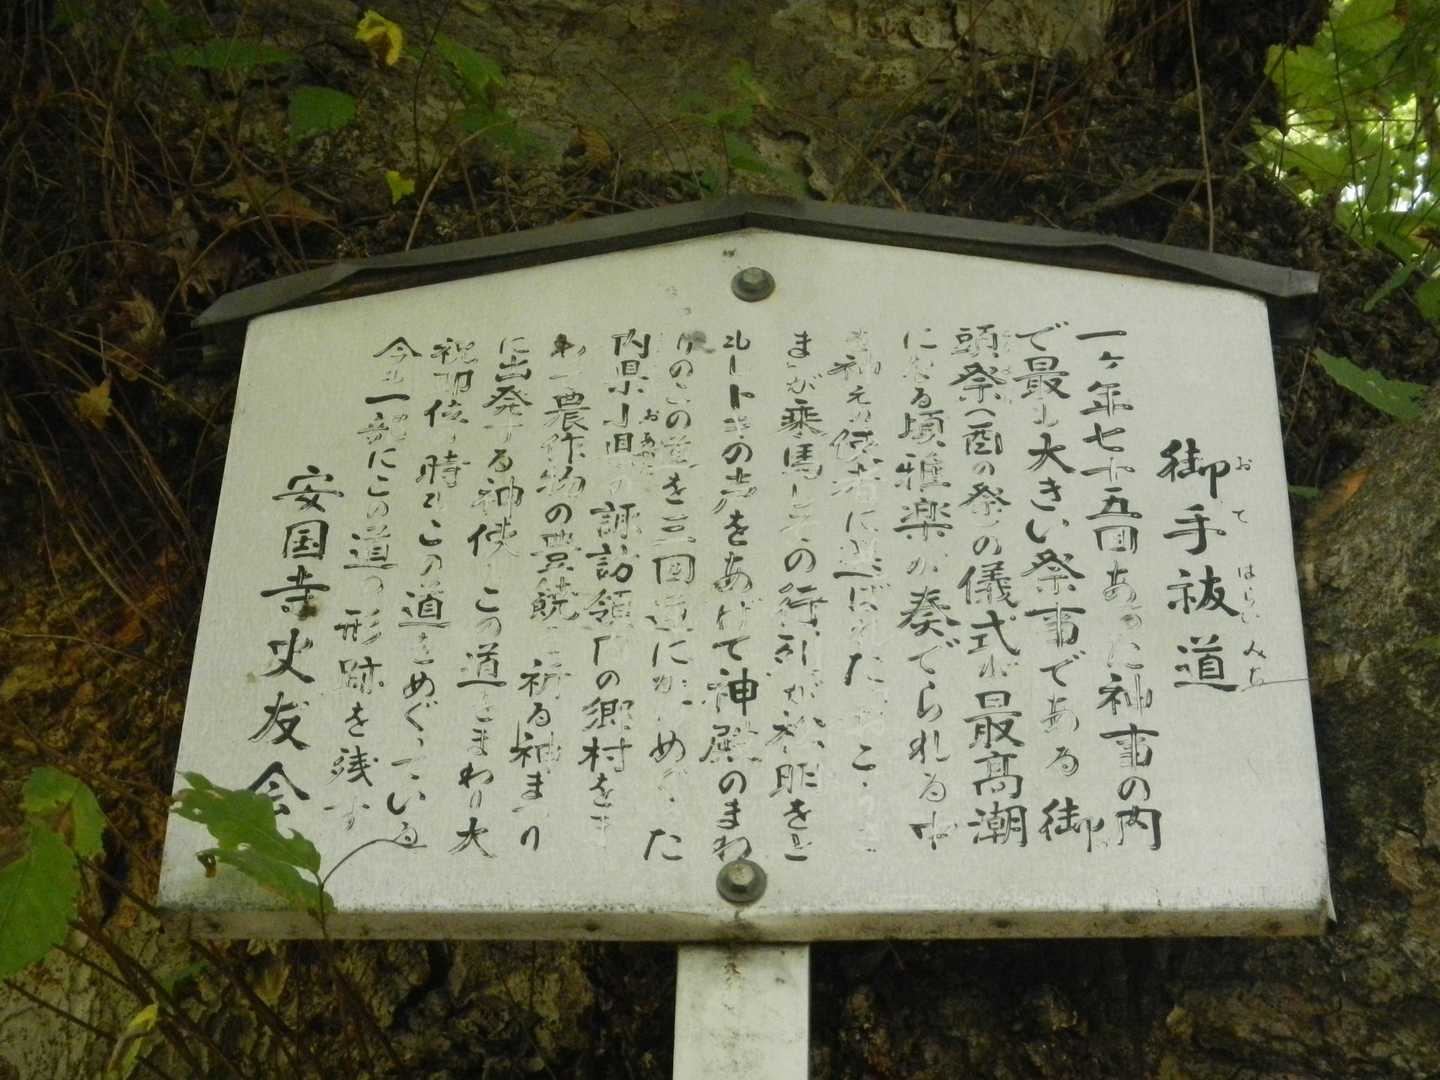 御手祓道
おてはらいみち
一ヶ年七十五回あった神事の内
で最も大きい祭事である御
頭祭(酉の祭)の儀式が最高潮
になる頃雅楽が奏でられる中
神 使者に選ばれた こ
まが乗馬しその行列が松明をと
の声をあげて神殿のまわ
の道を三回 にかけめぐった
内県小県 諏訪領 の郷村をま
農作物の豊饒を祈る神まつり
に出発する神使 この道をまわり大
祝即位の時もこの道をめぐっている
今も一部にこの道の形跡を残す
安国寺史友会